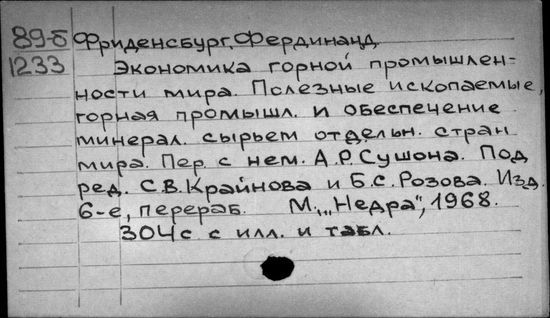 89-5 Фриденсбург, Фердинанд
1233 Экономика горной промышлен-
ности мира. Полезные ископаемые,
горная промышл. и обеспечение
минерал. сырьем отдельн. стран
мира. Пер. с нем. А.Р.Сушона. Под
ред. С.В.Крайнова и Б.С.Розова. Изд.
6-е, перераб. М., "Недра", 1968.
304с. с илл. и табл.